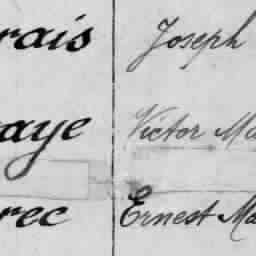 rais Joseph
aye Victor Ma
rec Ernest Ma